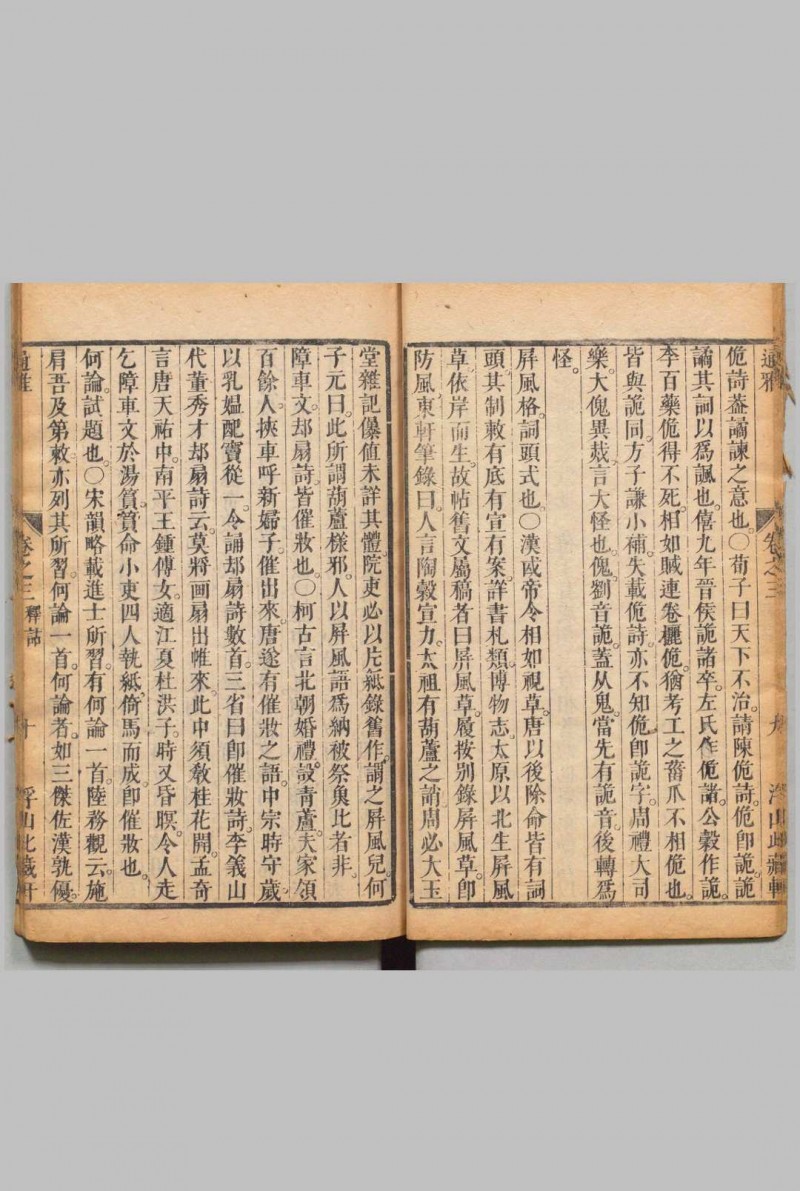 佹詩葢譎諫之意也〇荀子曰天下不治請陳佹詩佹卽詭詭
譎其詞以爲諷也僖九年晉侯詭諸卒左氏作佹諸公穀作詭
李百藥佹得不死相如賦連卷欐佹猶考工之菑爪不相佹也
皆與詭同方子謙小補失載佹詩亦不知佹卽詭字周禮大司
樂大傀異烖言大怪也傀劉音詭蓋从鬼當先有詭音後轉爲
怪
屛風格詞頭式也〇漢武帝令相如視草唐以後除命皆有詞
頭其制敕有底有宣有案詳書札類博物志太原以北生屛風
草依岸而生故帖舊文屬稿者曰屛風草履按別錄屛風草卽
防風東軒筆錄曰人言陶縠宣力太祖有葫蘆之誚周必大玉
堂雜記儤值未詳其體院吏必以片紙錄舊作謂之屛風兒何
子元曰此所謂葫蘆樣邪人以屛風語爲納被祭魚比者非
障車文却扇詩皆催妝也〇柯古言北朝婚禮設靑蘆夫家領
百餘人挾車呼新婦子催出來唐遂有催妝之語中宗時守歲
以乳媼配竇從一令誦却扇詩數首三省曰卽催妝詩李義山
代董秀才却扇詩云莫將画扇出帷來此中須敎桂花開孟奇
言唐天祐中南平王鍾傅女適江夏杜洪子時又昏暝令人走
乞障車文於湯篔篔命小吏四人執紙倚馬而成卽催妝也
何論試題也〇宋韻略載進士所習有何論一首陸務觀云施
肩吾及第敕亦列其所習何論一首何論者如三傑佐漢孰優
通雅
卷之三
釋詁
十
浮山此藏軒
通雅
卷之三
浮山此藏軒